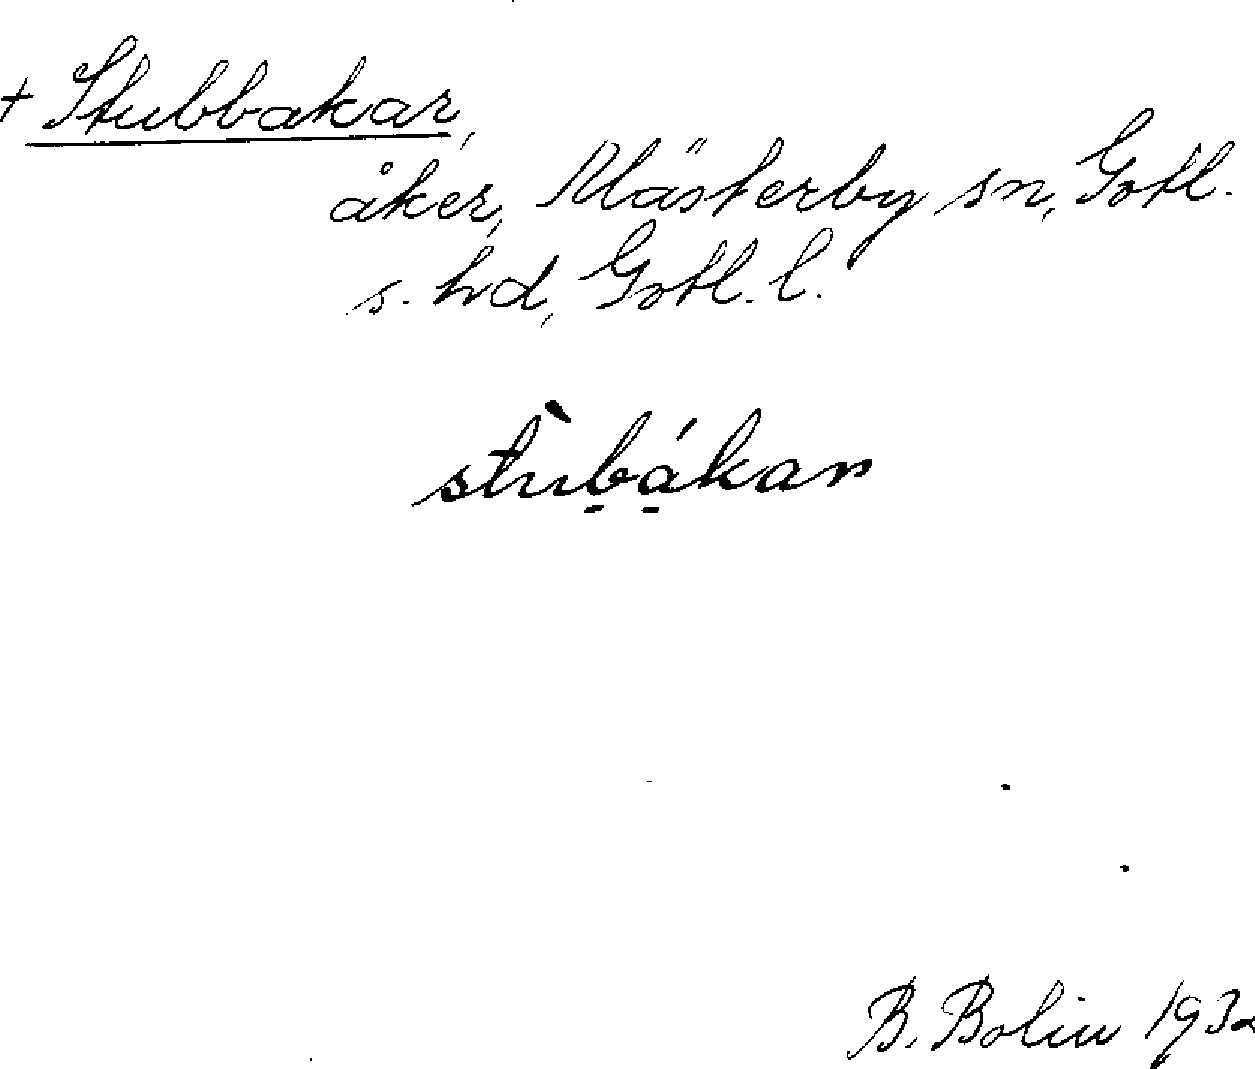 + Stubbakar,
åker, Klästerby sn, Gotl.
s. hd, Gotl. l.
stùb̠á̠kar
B. Bolin 1932